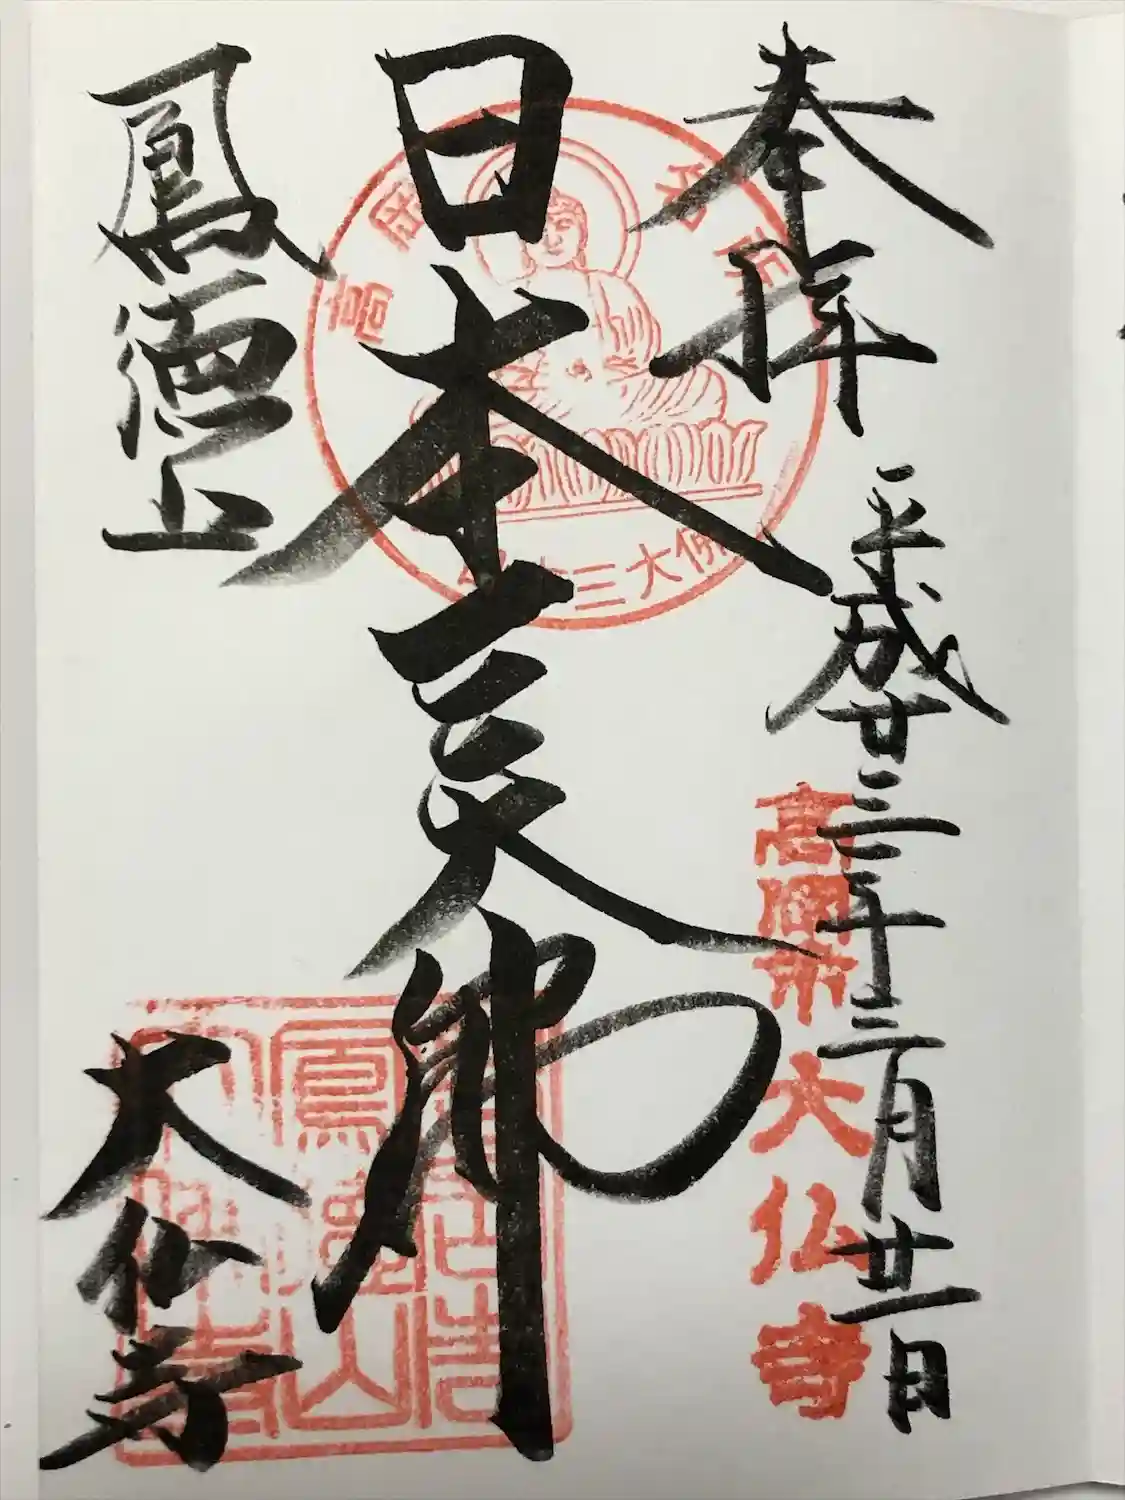 奉拝
平成廿三年三月廿一日
高岡市大仏寺
日本三大佛
高岡名所
日本三大佛
鳳徳山
大仏寺
鳳徳山